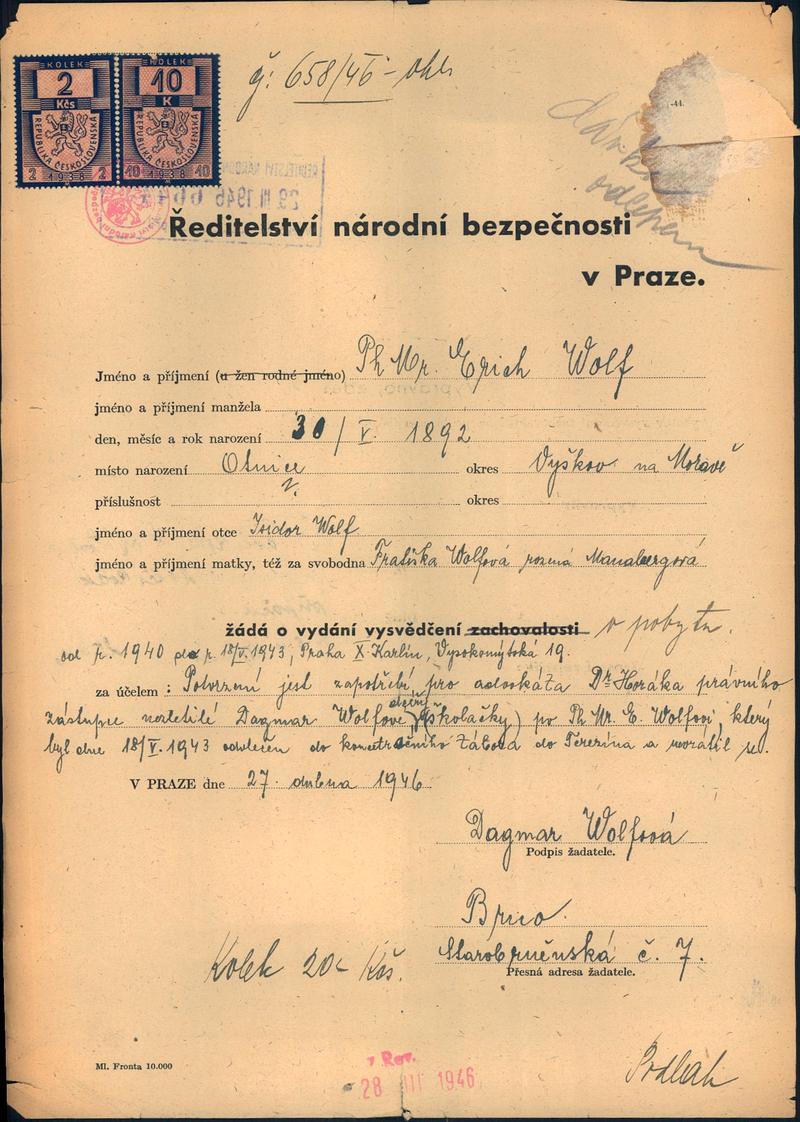 KOLEK KOLEK
2 10
Kčs K
REPUBLIKA ČESKOSLOVENSKÁ REPUBLIKA ČESKOSLOVENSKÁ
2 1938 2 10 1938 10
č: 658/46
-44.
odlepem
ŘEDITELSTVÍ NÁRODNÍ
29. III 1946
Ředitelství národní bezpečnosti
v Praze.
Jméno a příjmení (u žen rodné jméno) Ph Mr. Erich Wolf
jméno a příjmení manžela
den, měsíc a rok narození 30/V. 1892
místo narození Otnice okres Vyškov na Moravě
příslušnost okres
jméno a příjmení otce Isidor Wolf
jméno a příjmení matky, též za svobodna Fratiška Wolfová rozená Manabergová
žádá o vydání vysvědčení zachovalosti o pobytu.
od r. 1940 do r. 18/V. 1943, Praha X. Karlín, Vysokomýtská 19.
za účelem : Potvrzení jest zapotřebí pro advokáta Dr Horáka právního
zástupce nezletilé Dagmar Wolfové (školačky) po Ph Mr. E. Wolfovi, který
byl dne 18/V. 1943 odvlečen do koncentračního tábora do Terezína a nevrátil se.
V PRAZE dne 27. dubna 1946.
Dagmar Wolfová
Podpis žadatele.
Brno.
Starobrněnská č. 7.
Přesná adresa žadatele.
Kolek 20- Kčs.
Ml. Fronta 10.000
28 III 1946